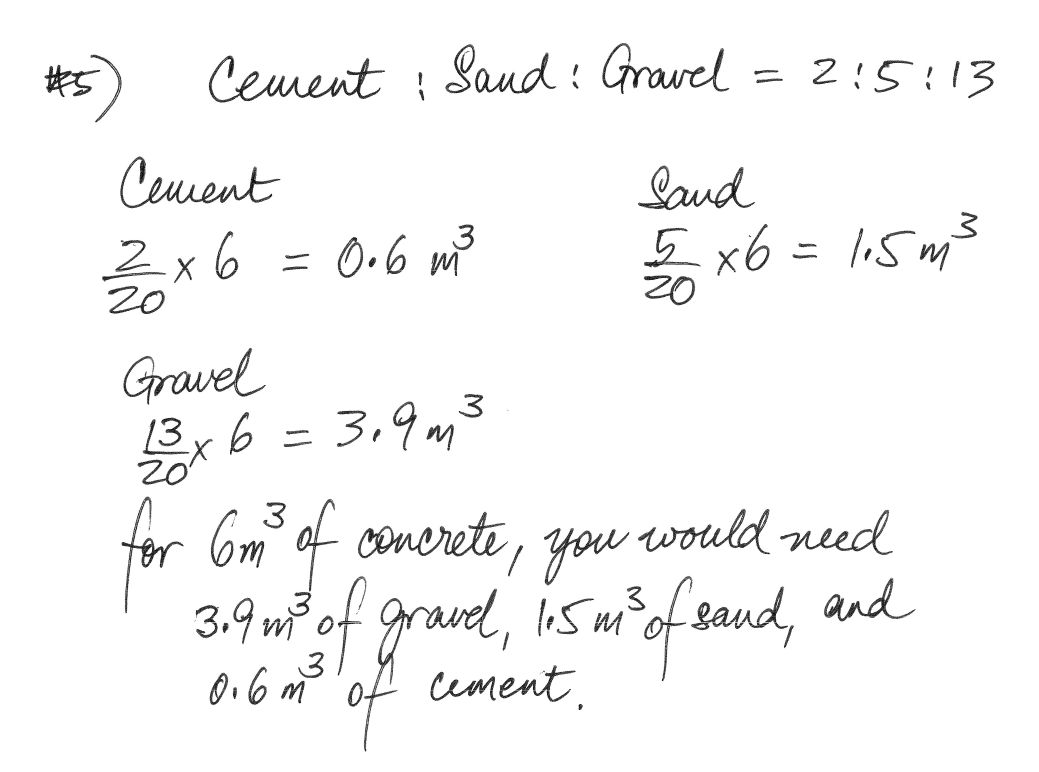 #5) Cement : Sand : Gravel = 2 : 5 : 13
Cement Sand
2/20 x 6 = 0.6 m³ 5/20 x 6 = 1.5 m³
Gravel
13/20 x 6 = 3.9 m³
for 6m³ of concrete, you would need
3.9 m³ of gravel, 1.5 m³ of sand, and
0.6 m³ of cement.